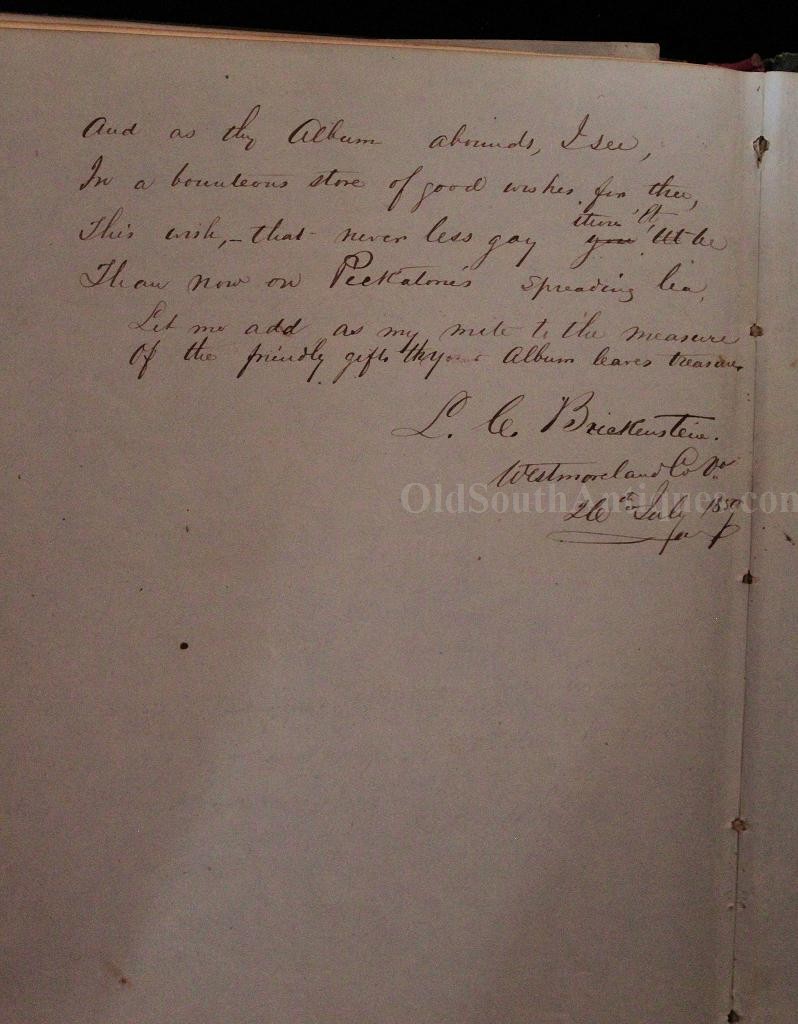 And as thy Album abounds, I see,
In a bounteous store of good wishes for thee,
This wish, – that never less gay you'lt be
thou'lt
Than now on Peckatone's spreading lea,
Let me add as my mite to the measure
Of the friendly gifts thy Album leaves treasure.
L. C. Brickenstein.
Westmoreland Co Va
OldSouthAntiques.com
26th July